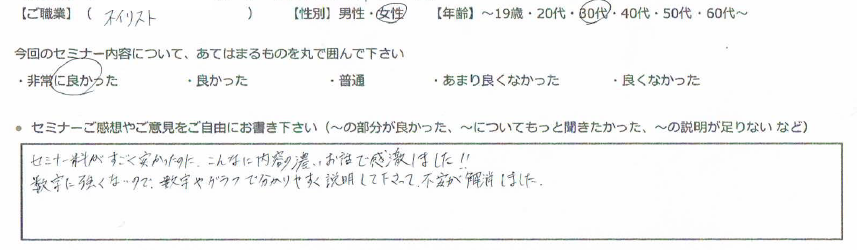 【ご職業】（ ネイリスト ） 【性別】男性・女性 【年齢】～19歳・20代・30代・40代・50代・60代～
今回のセミナー内容について、あてはまるものを丸で囲んで下さい
・非常に良かった ・良かった ・普通 ・あまり良くなかった ・良くなかった
● セミナーご感想やご意見をご自由にお書き下さい（～の部分が良かった、～についてもっと聞きたかった、～の説明が足りない など）
セミナー料がすごく安かったのに、こんなに内容の濃いお話で感激しました!!
数字に強くないので、数字やグラフで分かりやすく説明して下さって、不安が解消しました。